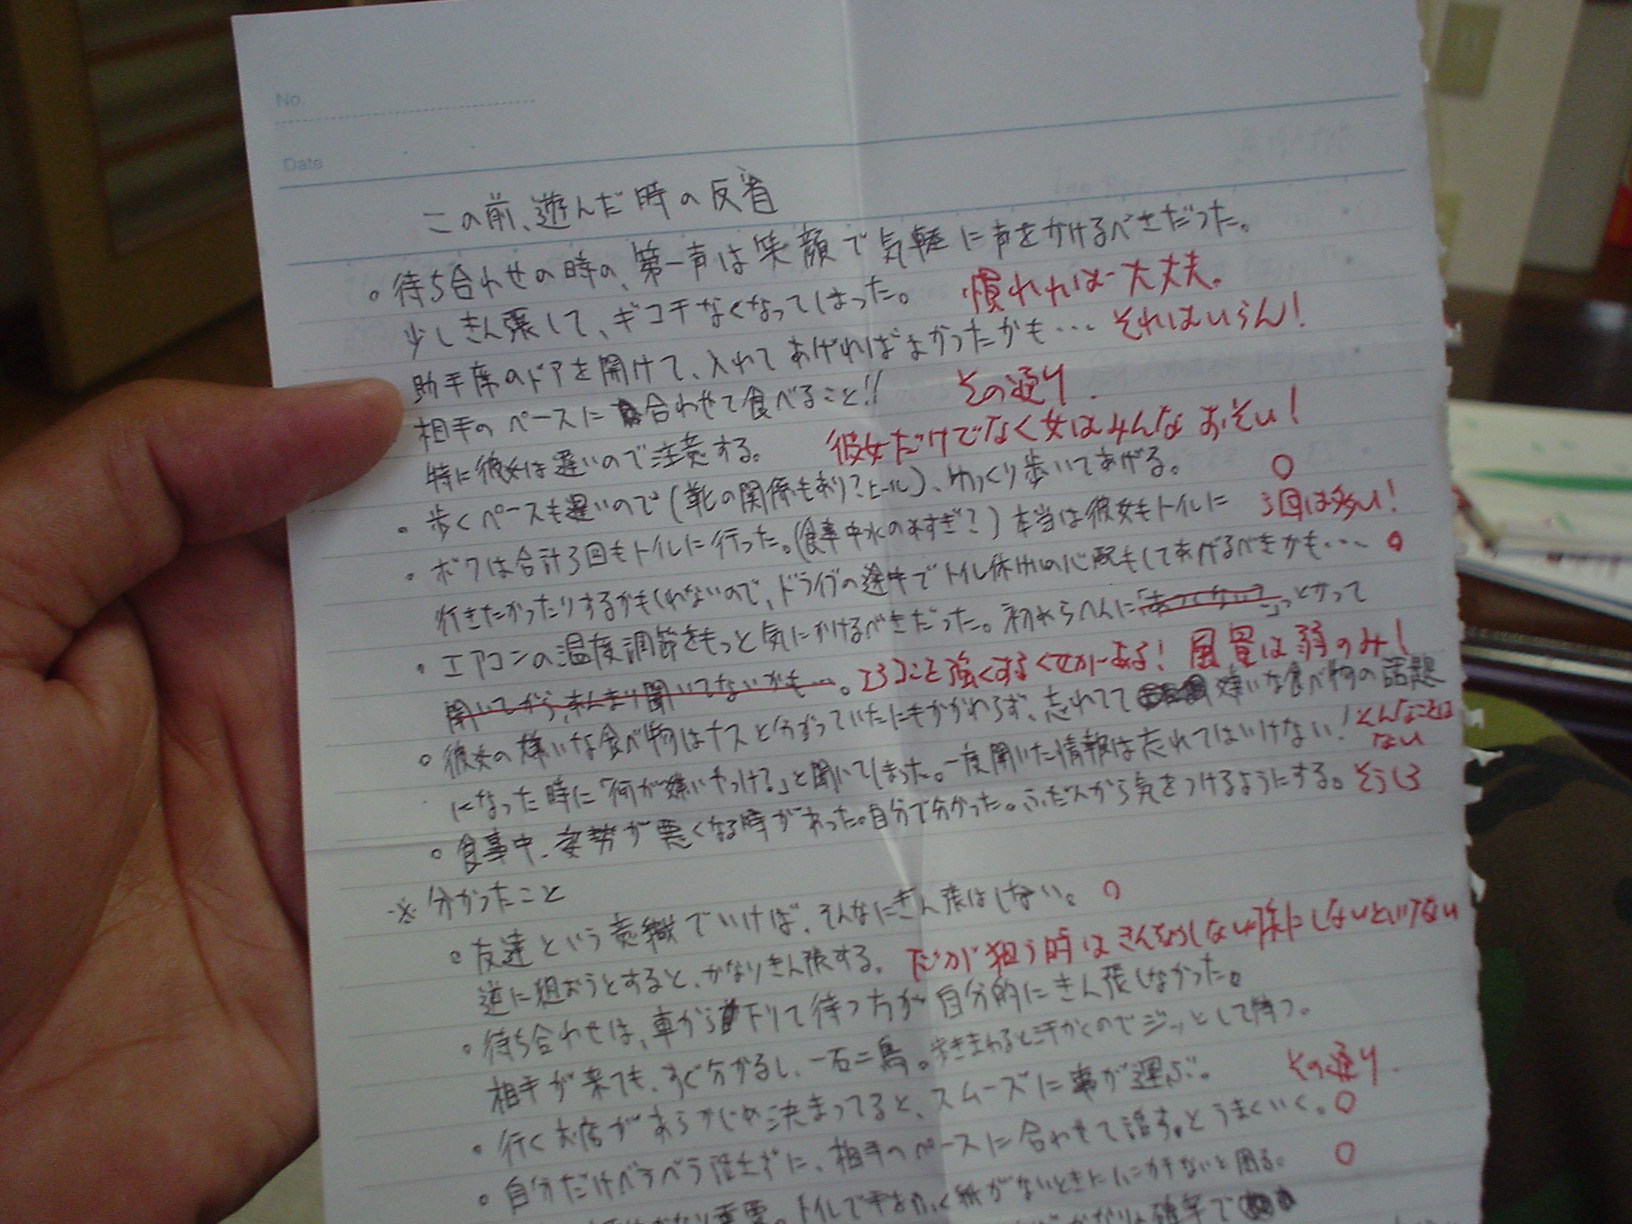 No.
Date
この前、遊んだ時の反省
。待ち合わせの時の、第一声は笑顔で気軽に声をかけるべきだった。
少しきん張して、ギコチなくなってしまった。 慣れれば大丈夫。
助手席のドアを開けて、入れてあげればよかったかも… それはいらん!
・相手のペースに合わせて食べること!! その通り.
特に彼女は遅いので注意する。 彼女だけでなく女はみんなおそい!
・歩くペースも遅いので(靴の関係もあり?ヒール)、ゆっくり歩いてあげる。 ○
・ボクは合計3回もトイレに行った。(食事中水のみすぎ?)本当は彼女もトイレに 3回は多い!
行きたかったりするかもしれないので、ドライブの途中でトイレ休けいの心配もしてあげるべきかも… ○
・エアコンの温度調節をもっと気にかけるべきだった。 とかって
聞いてから、あんまり聞いてないかも…。 強くするくせがある!風量は弱のみ!
。彼女の嫌いな食べ物はナスと分かっていたにもかかわらず、忘れてて 嫌いな食べ物の話題
になった時に「何が嫌いやっけ?」と聞いてしまった。一度聞いた情報は忘れてはいけない! そんなことはない
。食事中、姿勢が悪くなる時があった。自分で分かった。ふだんから気をつけるようにする。 そうしろ
※分かったこと
。友達という意識でいけば、そんなにきん張はしない。 ○
逆に狙おうとすると、かなりきん張する。 だが狙う時はきんちょうしない様にしないといけない
。待ち合わせは、車から下りて待つ方が自分的にきん張しなかった。
相手が来ても、すぐ分かるし、一石二鳥。歩きまわると汗かくのでジッとして待つ。
・行くお店があらかじめ決まってると、スムーズに事が運ぶ。 その通り.
・自分だけベラベラ話さずに、相手のペースに合わせて話す。とうまくいく。 ○
重要。トイレで手ふく紙がないときにハンカチないと困る。 ○
確率で